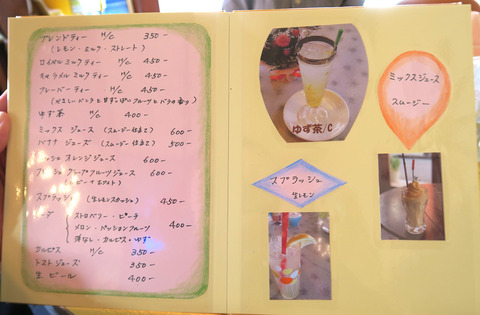 ブレンドティー H/C 350-
(レモン・ミルク・ストレート)
ロイヤルミルクティー H/C 450-
キャラメルミルクティー H/C 450-
フレーバーティー H/C 450-
ゆず茶 H/C 400-
ミックスジュース (スムージー仕立て) 600-
バナナジュース (スムージー仕立て) 500-
オレンジジュース 600-
グレープフルーツジュース 600-
スプラッシュ (生レモンスカッシュ) 450-
ストロベリー・ピーチ
メロン・パッションフルーツ 400-
洋なし・カルピス・ゆず
カルピス H/C 350-
トマトジュース 350-
生ビール 400-
ゆず茶/C
ミックスジュース
スムージー
スプラッシュ
生レモン